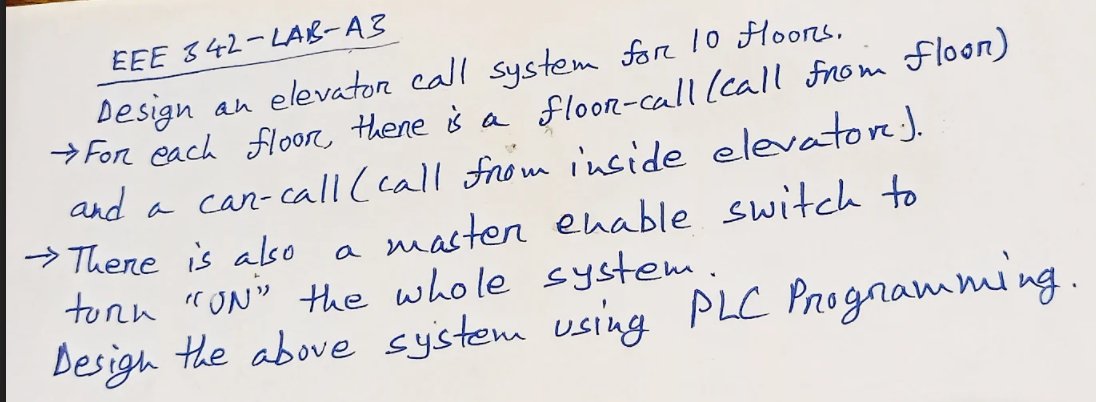 EEE 342-LAB-A3
Design an elevator call system for 10 floors.
→ For each floor, there is a floor-call (call from floor)
and a car-call (call from inside elevator).
→ There is also a master enable switch to
turn "ON" the whole system.
Design the above system using PLC Programming.